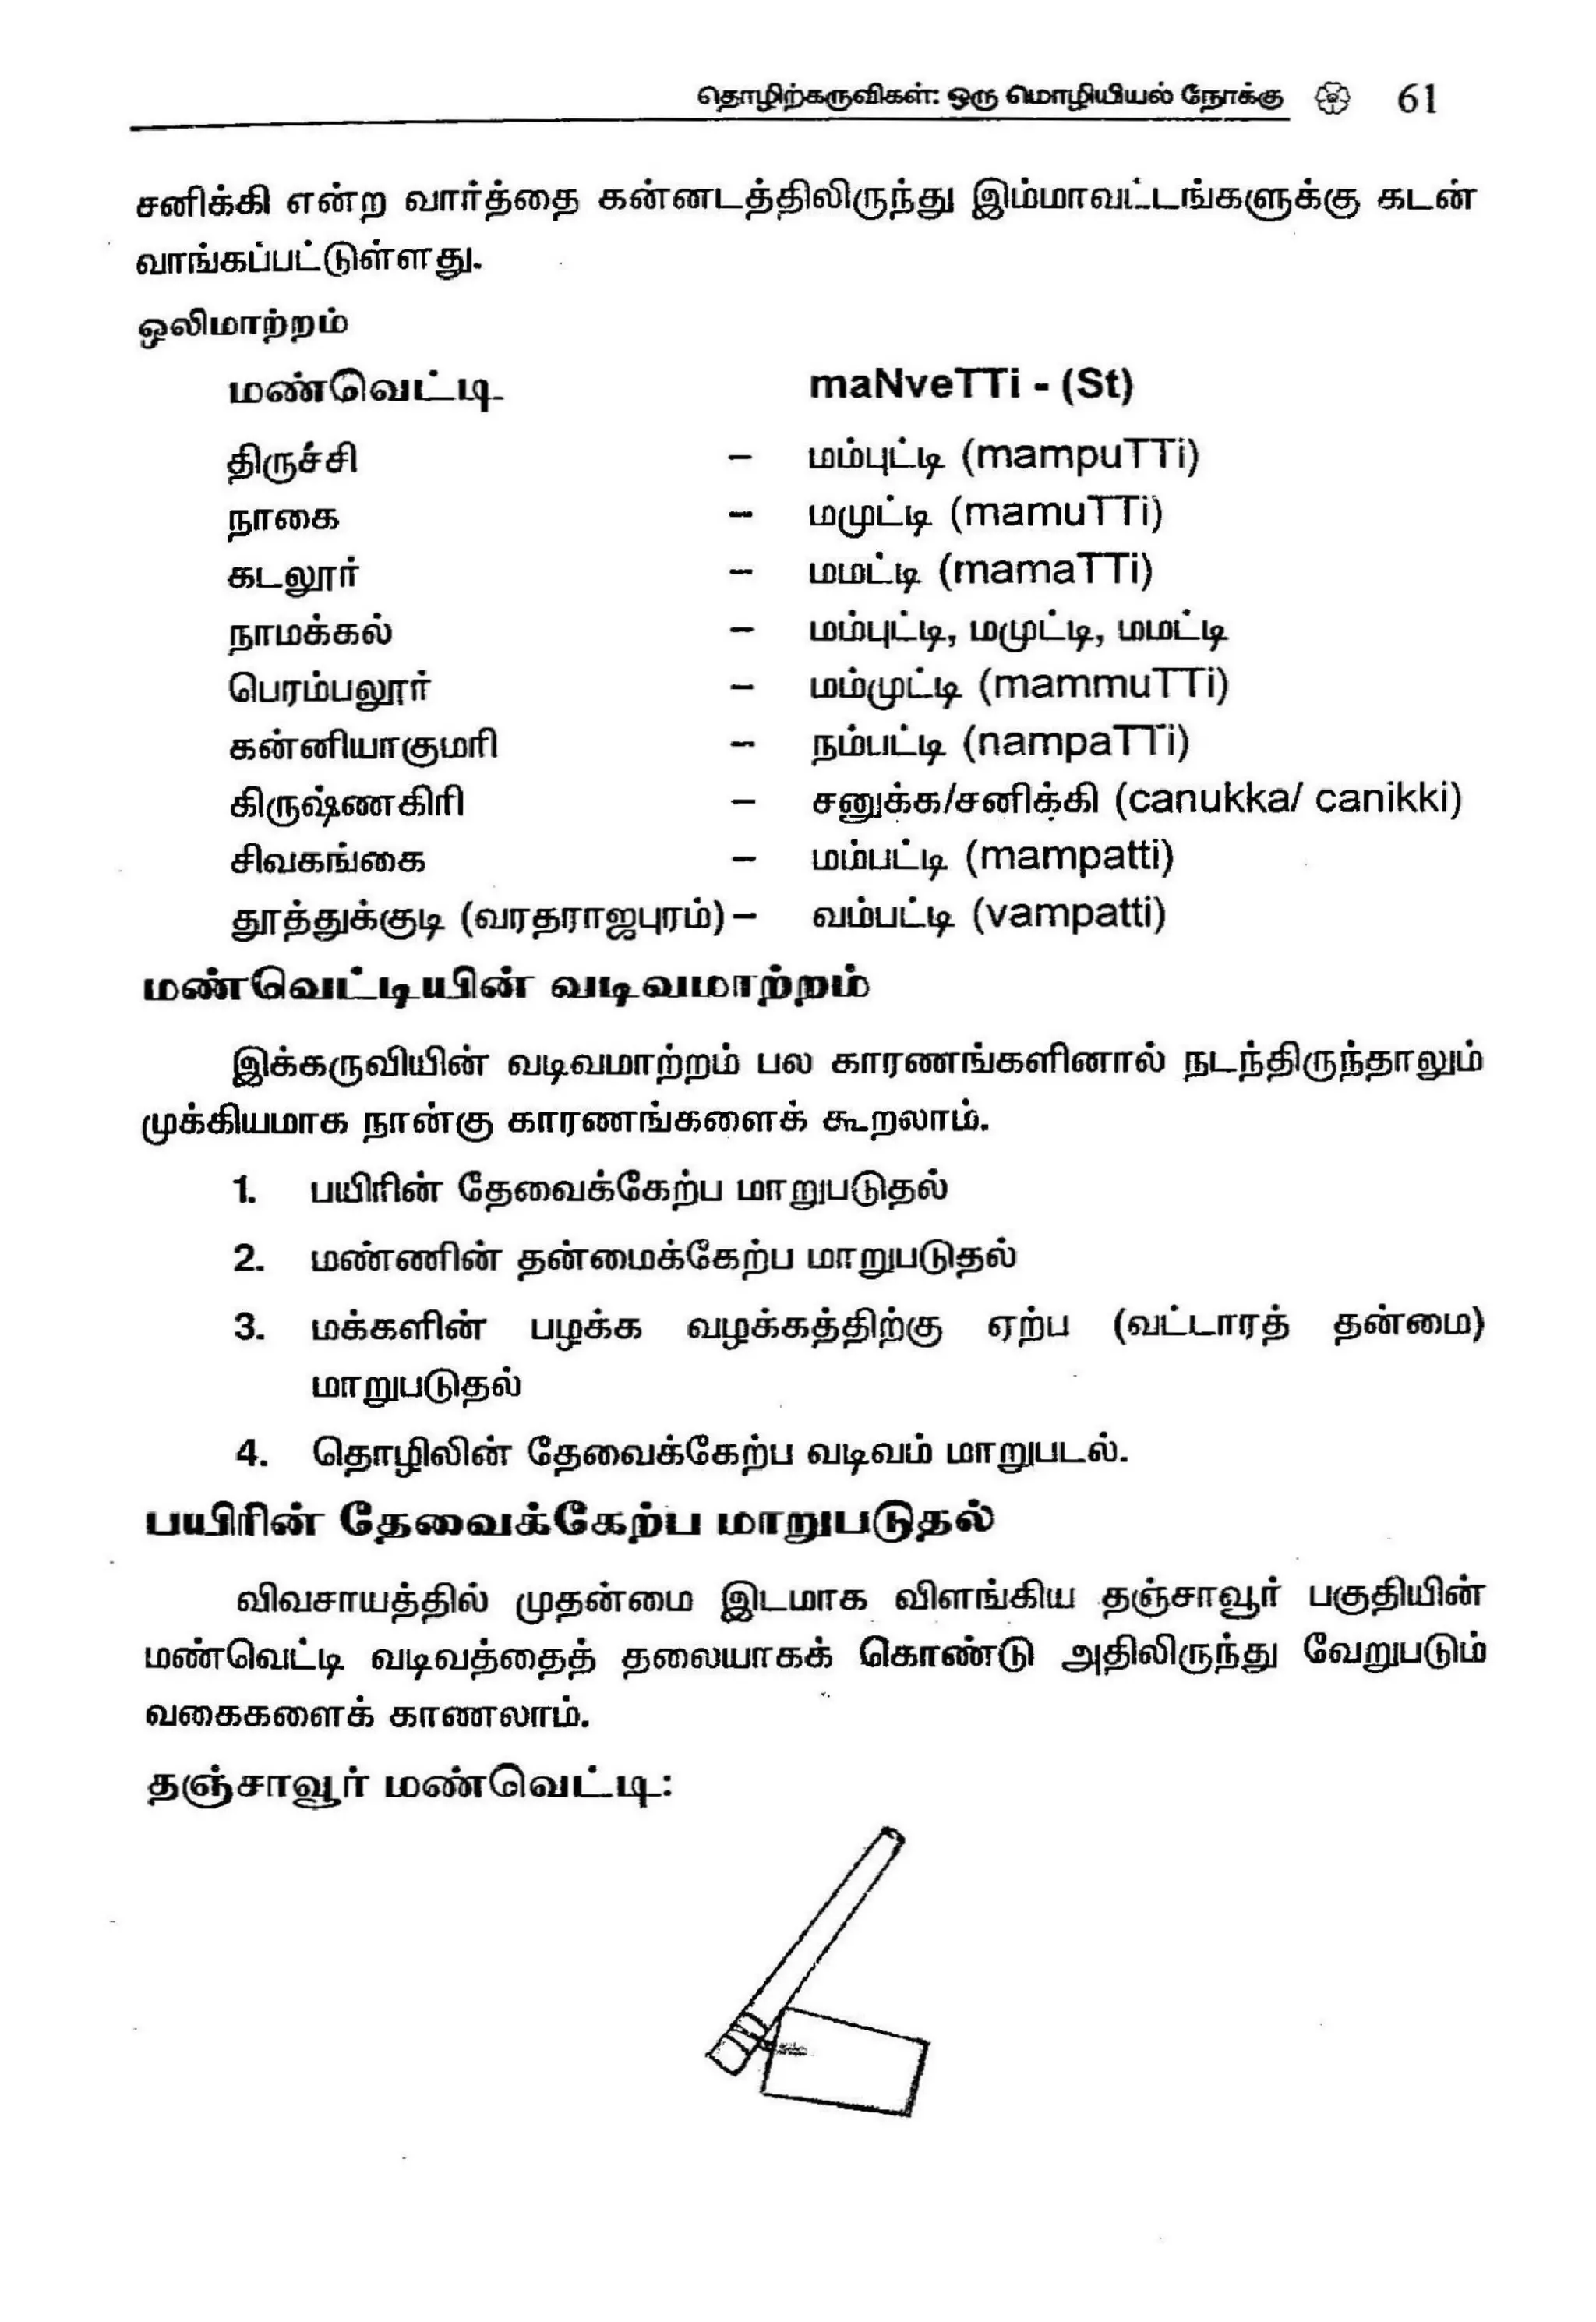 தொழிற்கருவிகள்: ஒரு மொழியியல் நோக்கு 61
சனிக்கி என்ற வார்த்தை கன்னடத்திலிருந்து இம்மாவட்டங்களுக்கு கடன்
வாங்கப்பட்டுள்ளது.
ஒலிமாற்றம்
மண்வெட்டி maNveTTi - (St)
திருச்சி – மம்புட்டி (mampuTTi)
நாகை – மமுட்டி (mamuTTi)
கடலூர் – மமட்டி (mamaTTi)
நாமக்கல் – மம்புட்டி, மமுட்டி, மமட்டி
பெரம்பலூர் – மம்முட்டி (mammuTTi)
கன்னியாகுமரி – நம்பட்டி (nampaTTi)
கிருஷ்ணகிரி – சனுக்க/சனிக்கி (canukka/ canikki)
சிவகங்கை – மம்பட்டி (mampatti)
தூத்துக்குடி (வரதராஜபுரம்) – வம்பட்டி (vampatti)
மண்வெட்டியின் வடிவமாற்றம்
இக்கருவியின் வடிவமாற்றம் பல காரணங்களினால் நடந்திருந்தாலும்
முக்கியமாக நான்கு காரணங்களைக் கூறலாம்.
1. பயிரின் தேவைக்கேற்ப மாறுபடுதல்
2. மண்ணின் தன்மைக்கேற்ப மாறுபடுதல்
3. மக்களின் பழக்க வழக்கத்திற்கு ஏற்ப (வட்டாரத் தன்மை)
மாறுபடுதல்
4. தொழிலின் தேவைக்கேற்ப வடிவம் மாறுபடல்.
பயிரின் தேவைக்கேற்ப மாறுபடுதல்
விவசாயத்தில் முதன்மை இடமாக விளங்கிய தஞ்சாவூர் பகுதியின்
மண்வெட்டி வடிவத்தைத் தலையாகக் கொண்டு அதிலிருந்து வேறுபடும்
வகைகளைக் காணலாம்.
தஞ்சாவூர் மண்வெட்டி: